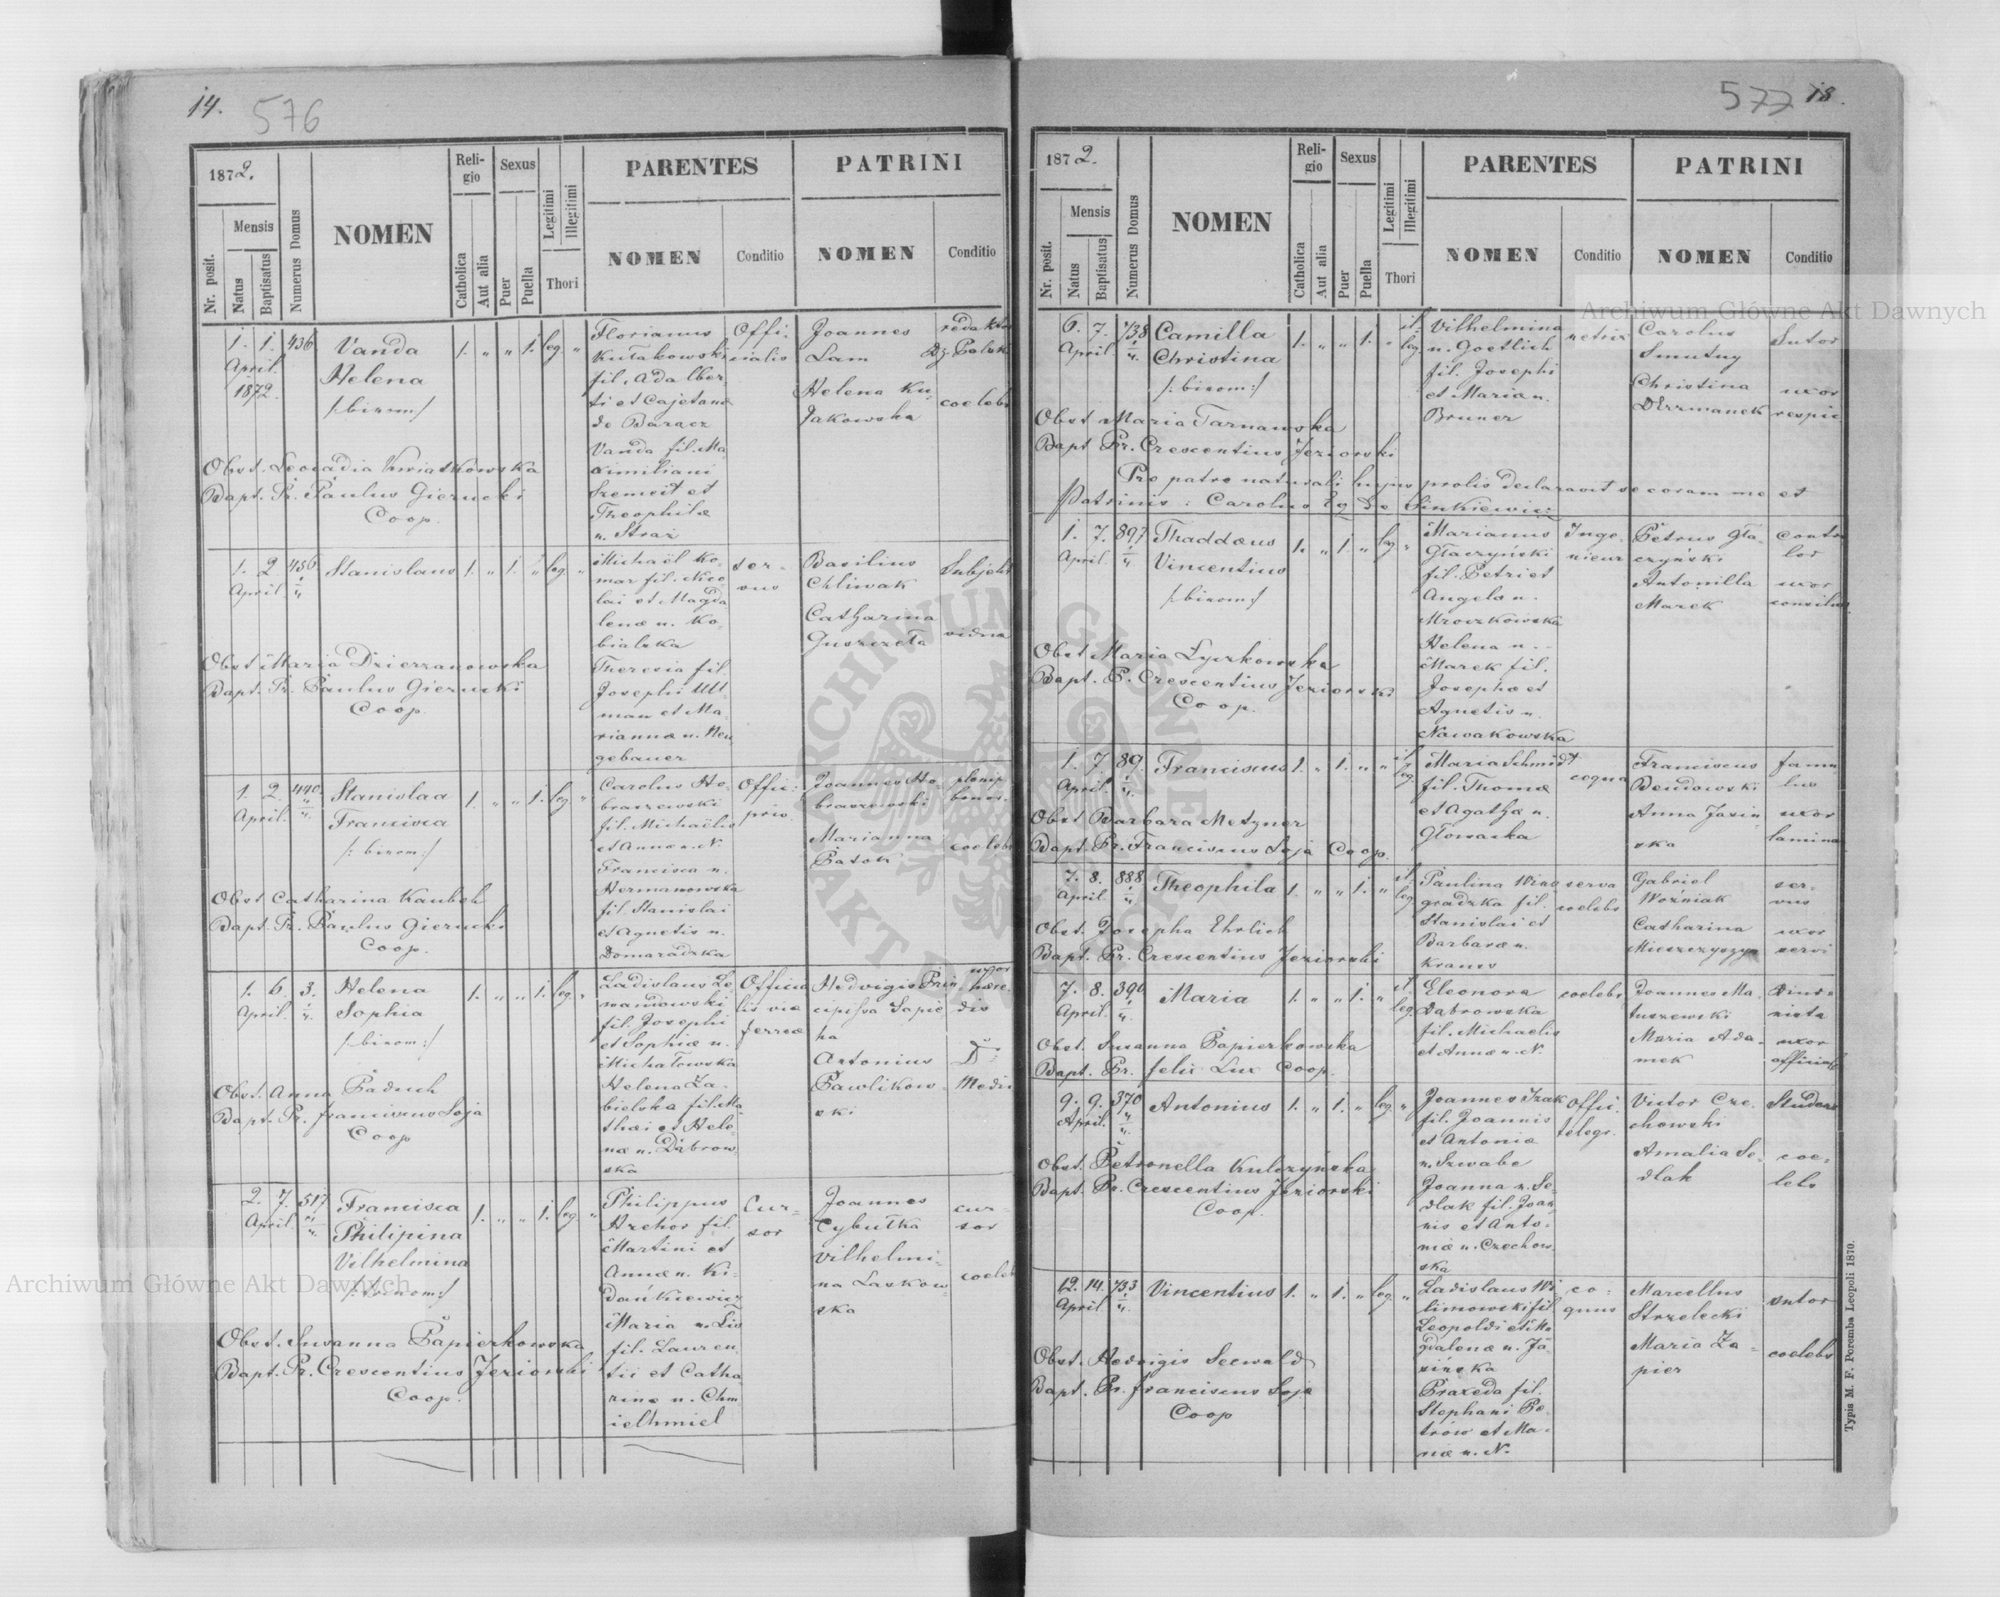 14. 576
1872.
Nr. posit.
Mensis
Natus
Baptisatus
Numerus Domus
NOMEN
Reli-
gio
Catholica
Aut alia
Sexus
Puer
Puella
Legitimi
Illegitimi
Thori
PARENTES
NOMEN
Conditio
PATRINI
NOMEN
Conditio
1. 1. 436
April
1872.
Vanda
Helena
/:binom:/
1. „ „ 1. leg. „
Florianus
Kułakowski
fil. Adalber-
ti et Cajetanæ
de Baracz
Vanda fil. Ma-
ximiliani
Szemeit et
Theophilæ
n. Straż
Offi-
cialis
Joannes
Lam
Helena Ku-
łakowska
redaktor
Dz. Polsk.
coelebs
Obst. Leocadia Kwiatkowska
Bapt. Fr. Paulus Gierucki
Coop.
1. 2 456
April
Stanislaus
1. „ 1. „ leg. „
Michaël Ko-
mar fil. Nico
lai et Magda
lenæ n. Ko-
bialzka
Theresia fil.
Josephi Ull-
man et Ma-
riannæ n. Neu
gebauer
ser-
vus
Basilius
Chliwak
Catharina
Guszczeta
Subjekt
vidua
Obst Maria Dzierzanowska
Bapt. Fr. Paulus Gierucki
Coop.
1. 2. 490
April.
Stanislaa
Francisca
/:binom:/
1. „ „ 1. leg „
Carolus Ho-
braszewski
fil. Michaëlis
et Annæ n. N.
Francisca n.
Hermanowska
fil. Stanislai
et Agnetis n.
Domaradzka
Offi-
prio.
Joannes Ho-
braszewski
Marianna
Patok
coelebs
Obst Catharina Kaubek
Bapt. Fr. Paulus Gierucki
Coop.
1. 6. 3.
April.
Helena
Sophia
/:binom:/
1. „ „ 1. leg. „
Ladislaus Le-
wandowski
fil. Josephi
et Sophiæ n.
Michałowska
Helena Za-
bielska fil. Ma-
thæi et Hele-
næ n. Dąbrow-
ska
Officia
lis viæ
ferreæ
Hedvigis Prin-
cipissa Sapie
ha
Antonius
Pawlikow-
ski
uxor
hære-
dis
Dr
Medic
Obst. Anna Paduch
Bapt. Fr. Franciscus Soja
Coop
2. 7. 517
April.
Francisca
Philipina
Vilhelmina
/:trinom:/
1. „ „ 1. leg „
Philippus
Hrehor fil.
Martini et
Annæ n. Ki-
dańkiewicz
Maria n. Lis
fil. Lauren-
tii et Catha-
rinæ n. Chm
ielhmiel
Cur-
sor
Joannes
Cybulka
Vilhelmi-
na Laskow-
ska
cur-
sor
coeleb
Obst. Susanna Papierkowska
Bapt. Fr. Crescentius Jeziorski
Coop.
577 15.
1872.
Nr. posit.
Mensis
Natus
Baptisatus
Numerus Domus
NOMEN
Reli-
gio
Catholica
Aut alia
Sexus
Puer
Puella
Legitimi
Illegitimi
Thori
PARENTES
NOMEN
Conditio
PATRINI
NOMEN
Conditio
6. 7. 738
April
Camilla
Christina
/:binom:/
1. „ „ 1. „ il.
leg
Vilhelmina
n. Goetlich
fil. Josephi
et Maria n.
Bruner
Carolus
Smutny
Christina
Sutor
uxor
Obst Maria Tarnawska
Bapt Fr. Crescentius Jeziorski
Pro patre naturali hujus prolis declaravit se coram me et
Patrinis: Carolus Eg de Sinkiewicz
1. 7. 897
April
Thaddæus
Vincentius
/:binom:/
1. „ 1. „ leg „
Marianus
Głaczyński
fil. Petri et
Angela n.
Mroczkowska
Helena n.
Marek fil.
Josephæ et
Agnetis n.
Nawakowska
Inge-
nieur
Petrus Gła-
czyński
Antonilla
Marek
contro
lor
uxor
consilia
Obst Maria Łyczkowska
Bapt. P. Crescentius Jeziorski
Coop.
1. 7 89
April.
Franciscus
1. „ 1. „ „ il
leg.
Maria Schmidt
fil. Thomæ
et Agatha n.
Głowacka
coqua
Franciscus
Bendowski
Anna Jasin
ska
famu
lus
uxor
Obst Barbara Metzner
Bapt. Fr. Franciscus Soja Coop.
7. 8. 888
April
Theophila
1. „ „ 1. „ il
leg
Paulina Wino
gradzka fil.
Stanislai et
Barbaræ n.
Kranes
serva
coelebs
Gabriel
Woźniak
Catharina
Mieszczyszyn
ser-
vus
uxor
servi
Obst. Josepha Ehrlich
Bapt. Fr. Crescentius Jeziorski
7. 8. 390
April
Maria
1. „ „ 1. „ il
leg.
Eleonora
Dąbrowska
fil. Michaelis
et Annæ n. N.
coelebs
Joannes Ma-
tuszewski
Maria Ada-
mek
uxor
official
Obst. Susanna Papierkowska
Bapt. Fr. Felix Lux Coop.
9. 9. 370
April.
Antonius
1. „ 1. „ leg. „
Joannes Izak
fil. Joannis
et Antoniæ
n. Szwabe
Joanna n. Se-
dlak fil. Joan-
nis et Anto-
niæ n. Czechow-
ska
Offic.
telegr.
Victor Cze-
chowski
Amalia Se-
dlak
Studens
coe-
lebs
Obst. Petronella Kulczyńska
Bapt. Fr. Crescentius Jeziorski
Coop.
12. 14. 733
April
Vincentius
1. „ 1. „ leg. „
Ladislaus Wi
limowski fil
Leopoldi et Ma
gdalenæ n. Ja-
sińska
Praxeda fil.
Stephani Pe-
trów et Ma-
riæ n. N.
co-
quus
Marcellus
Strzelecki
Maria Za-
pier
sutor
coelebs
Obst. Hedvigis Seewald
Bapt. Fr. Franciscus Soja
Coop
Typis M. F. Poremba Leopoli 1870.
Archiwum Główne Akt Dawnych
Archiwum Główne Akt Dawnych
ARCHIWUM GŁÓWNE AKT DAWNYCH